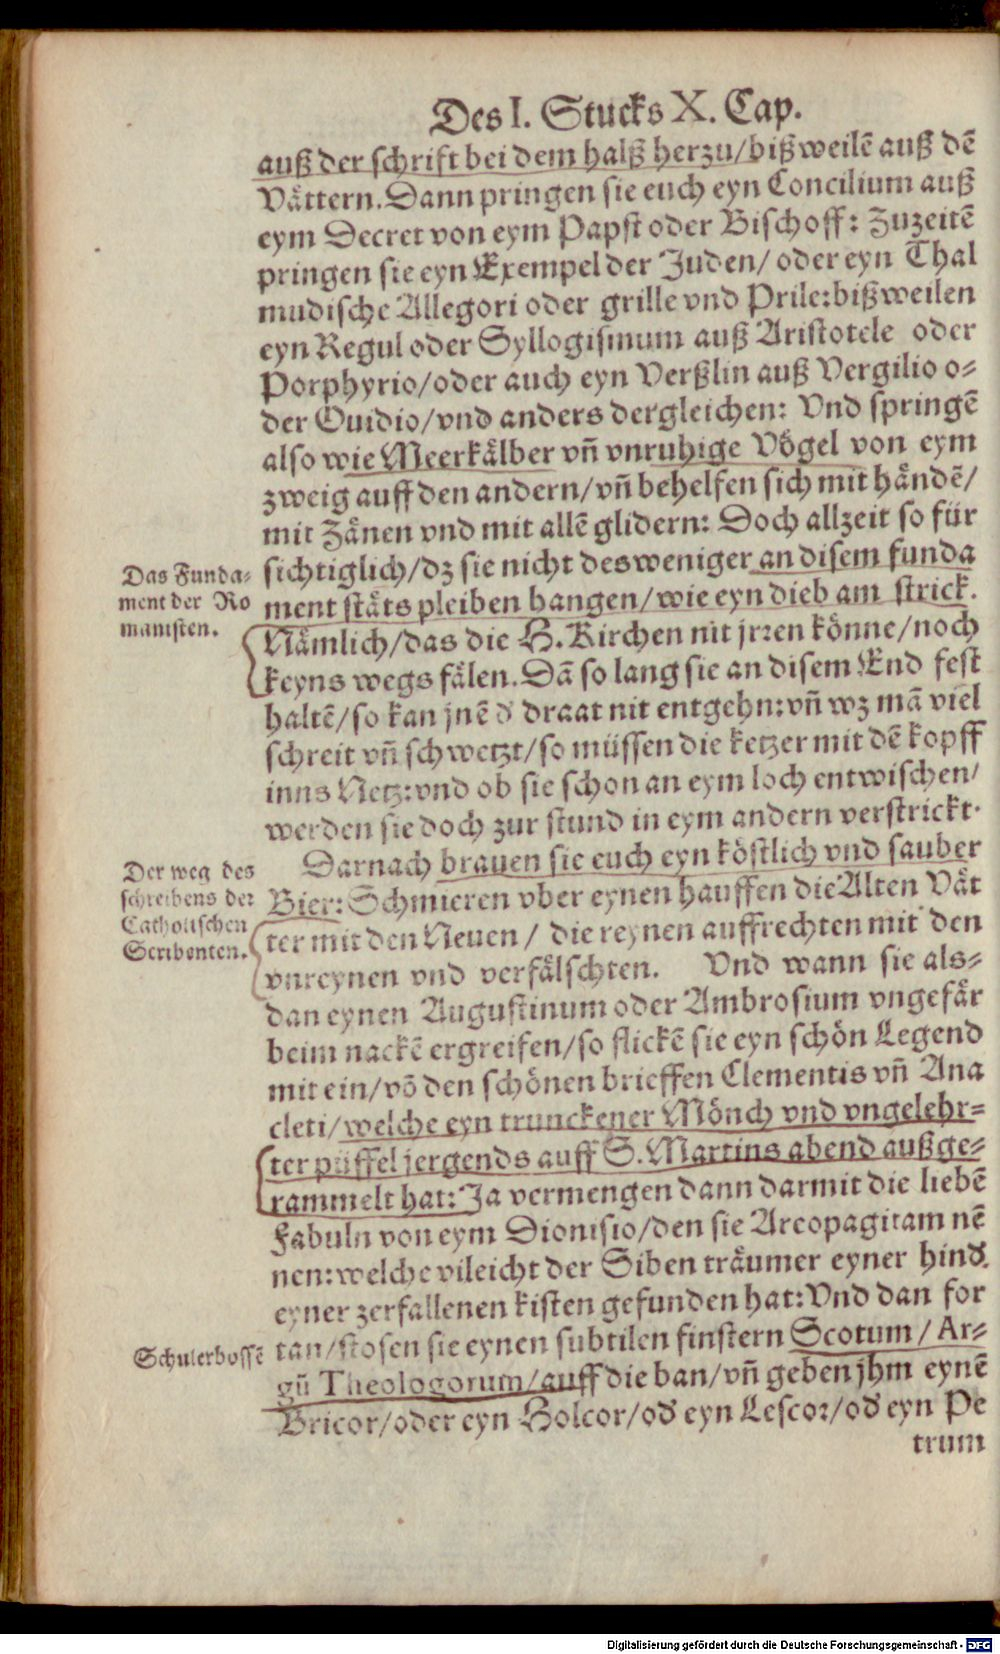 Des I. Stucks X. Cap.
auß der schrift bei dem halß herzu/bißweilē auß dē
Vättern. Dann pringen sie euch eyn Concilium auß
eym Decret von eym Papst oder Bischoff: Zuzeitē
pringen sie eyn Exempel der Juden/ oder eyn Thal
mudische Allegori oder grille vnd Prile: bißweilen
eyn Regul oder Syllogismum auß Aristotele oder
Porphyrio/oder auch eyn Verßlin auß Vergilio o-
der Ouidio/vnd anders dergleichen: Vnd springē
also wie Meerkälber vñ vnruhige Vögel von eym
zweig auff den andern/vñ behelfen sich mit händē/
mit Zänen vnd mit allē glidern: Doch allzeit so für
sichtiglich/dz sie nicht desweniger an disem funda
ment stäts pleiben hangen/wie eyn dieb am strick.
Das Funda-
ment der Ro
manisten.
Nämlich/das die H. Kirchen nit jrren könne/noch
keyns wegs fälen. Dā so lang sie an disem End fest
haltē/so kan jnē d' draat nit entgehn: vñ wz mā viel
schreit vñ schwetzt/so müssen die ketzer mit dē kopff
inns Netz: vnd ob sie schon an eym loch entwischen/
werden sie doch zur stund in eym andern verstrickt.
Darnach brauen sie euch eyn köstlich vnd sauber
Der weg des
schreibens der
Catholischen
Scribenten.
Bier: Schmieren vber eynen hauffen die Alten Vät
ter mit den Neuen/ die reynen auffrechten mit den
vnreynen vnd verfälschten. Vnd wann sie als-
dan eynen Augustinum oder Ambrosium vngefär
beim nackē ergreifen/so flickē sie eyn schön Legend
mit ein/vō den schönen brieffen Clementis vñ Ana
cleti/welche eyn trunckener Mönch vnd vngelehr-
ter püffel jergends auff S. Martins abend außge-
rammelt hat: Ja vermengen dann darmit die liebē
Fabuln von eym Dionisio/den sie Areopagitam nē
nen: welche vileicht der Siben träumer eyner hind'
eyner zerfallenen kisten gefunden hat: Vnd dan for
tan/stosen sie eynen subtilen finstern Scotum/ Ar-
Schulerbossē
gū Theologorum/auff die ban/vñ geben jhm eynē
Bricor/oder eyn Holcor/od' eyn Lescor/od' eyn Pe
trum
Digitalisierung gefördert durch die Deutsche Forschungsgemeinschaft - DFG